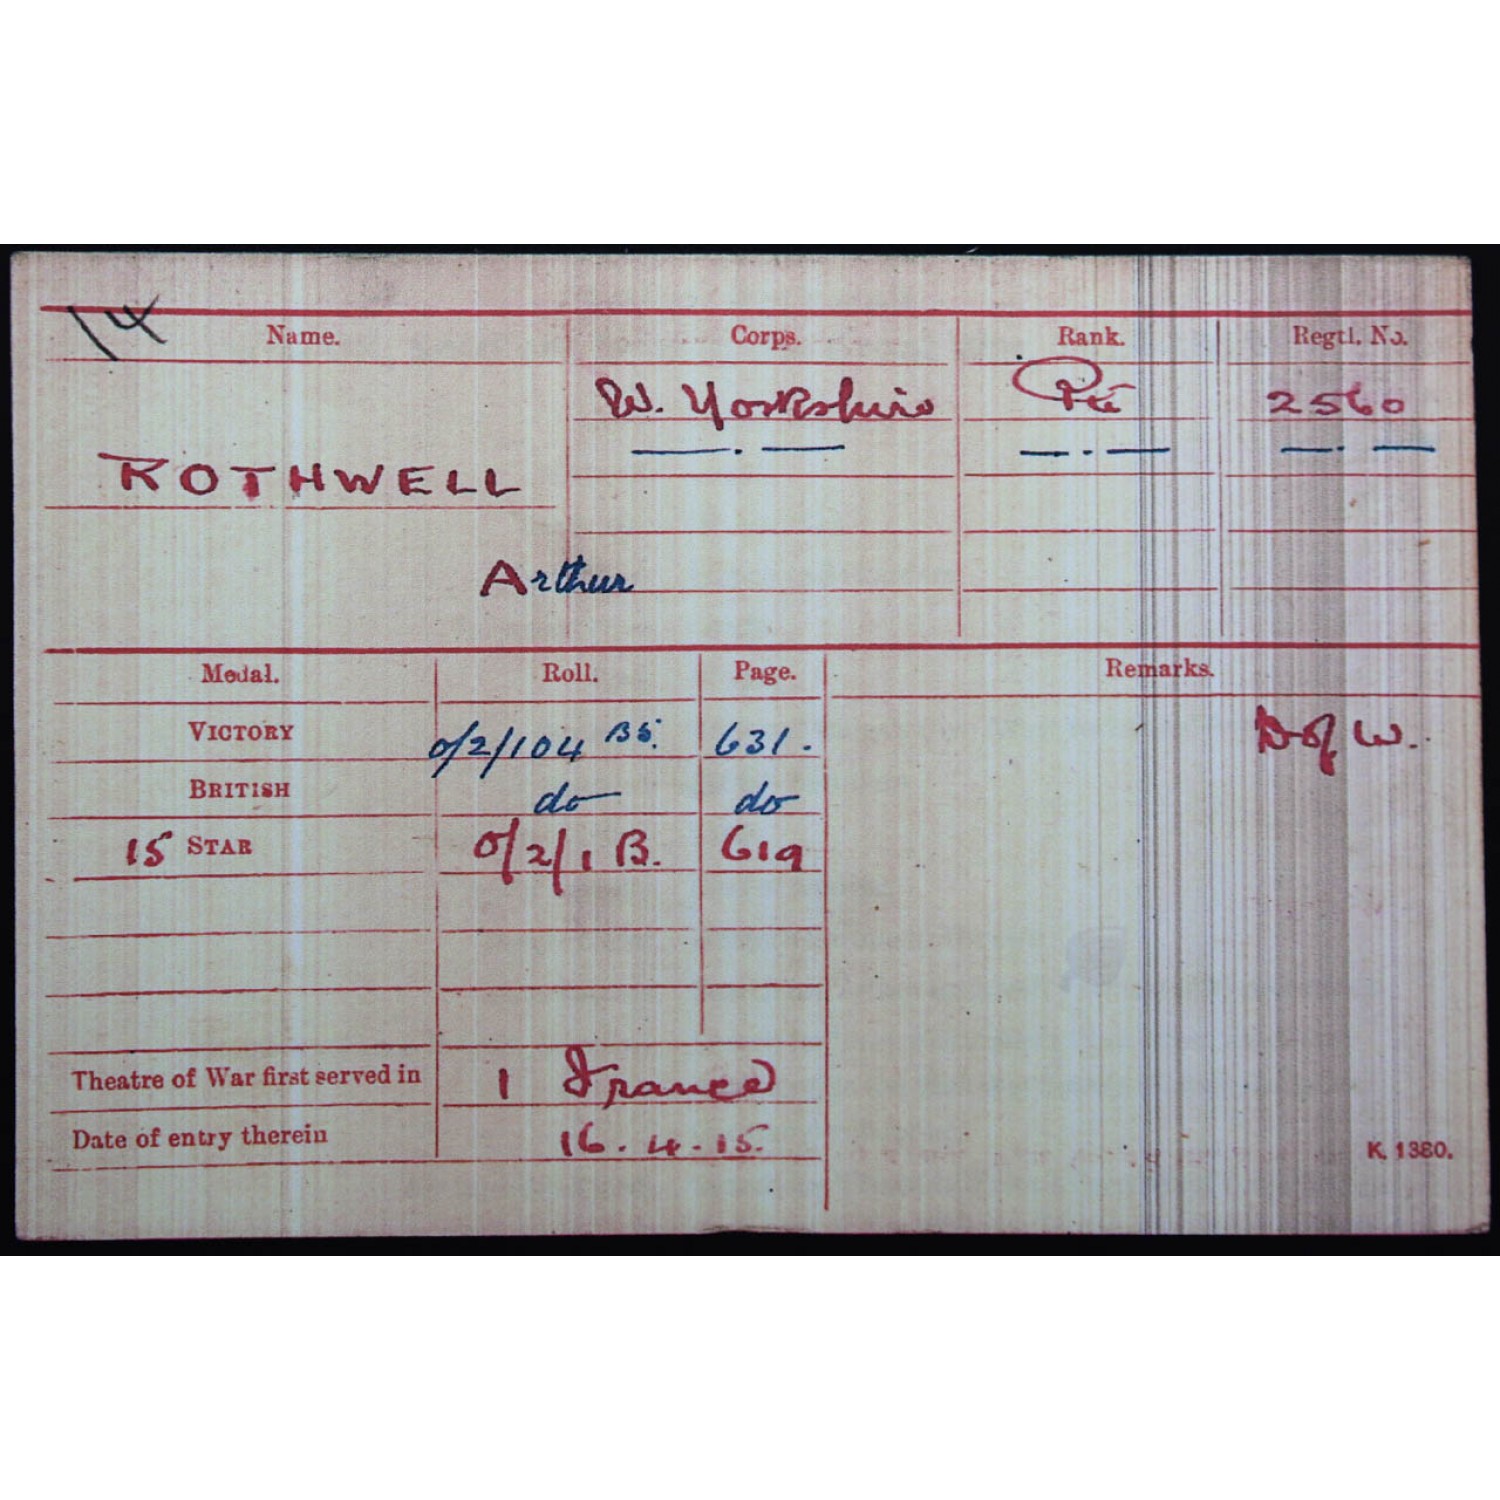 14
Name. Corps. Rank. Regtl. No.
W. Yorkshire Pte 2560
—.— —.— —.—
ROTHWELL
Arthur
Medal. Roll. Page. Remarks.
VICTORY 0/2/104 B5. 631. D of W.
BRITISH do do
15 STAR 0/2/1 B. 619
Theatre of War first served in 1 France
Date of entry therein 16.4.15.
K. 1380.